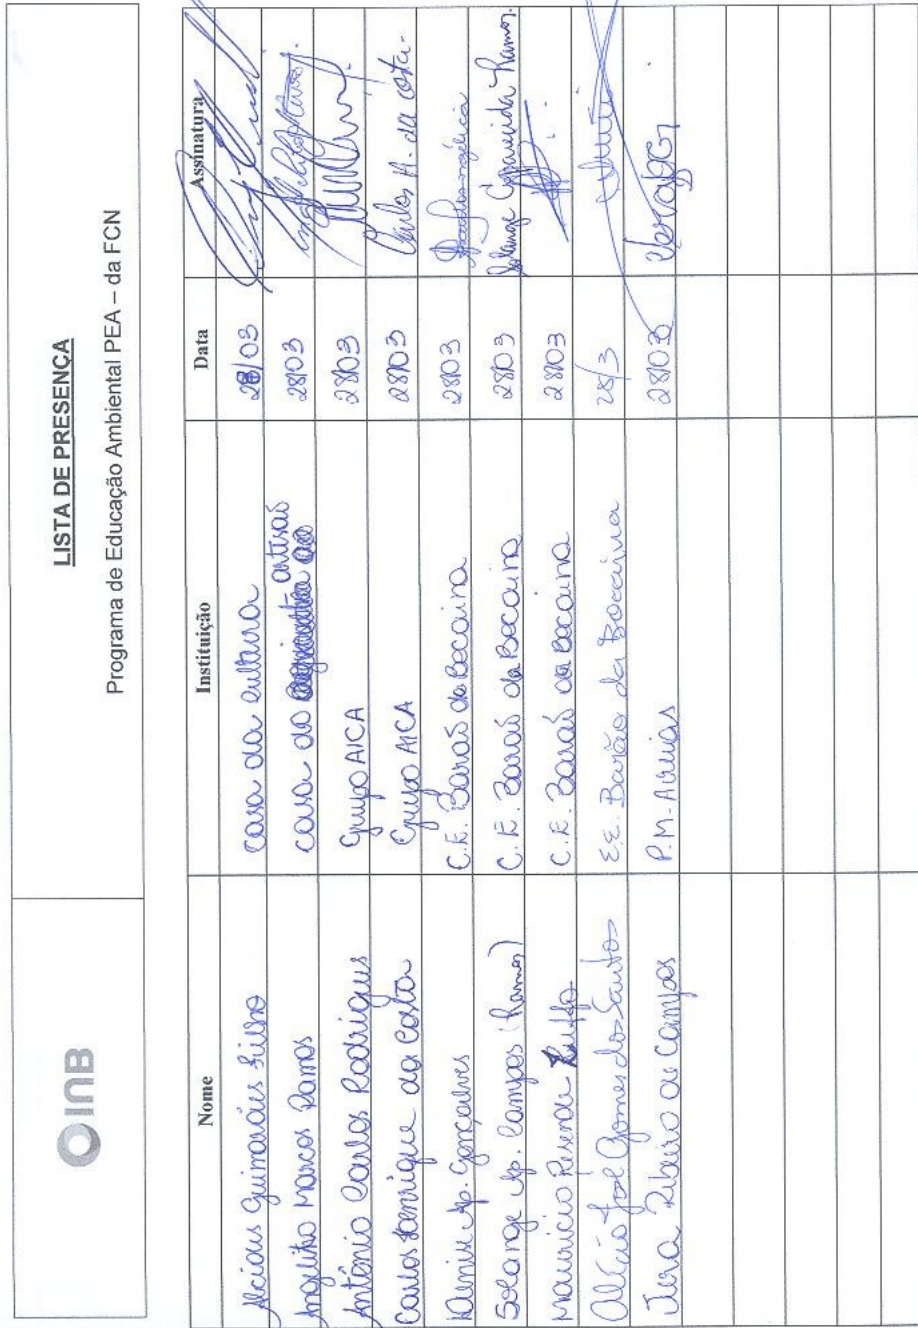 INB
LISTA DE PRESENÇA
Programa de Educação Ambiental PEA – da FCN
Nome Instituição Data Assinatura
Alcious Guimarães Filho casa da cultura 28/03
Angelito Marcos Ramos casa do artesaõ 28/03
Antônio Carlos Rodrigues Grupo AICA 28/03
Carlos Henrique da Costa Grupo AICA 28/03 Carlos H. da Costa.
Denise Ap. Gonçalves C.E. Baraõ da Bocaina 28/03
Solange Ap. Campos (Ramos) C.E. Baraõ da Bocaina 28/03 Solange Aparecida Ramos.
Mauricio Resende C.E. Baraõ da Bocaina 28/03
Alécio José Gomes dos Santos E.E. Barão da Bocaina 28/3
Ribeiro de Campos P.M. Areias 28/03